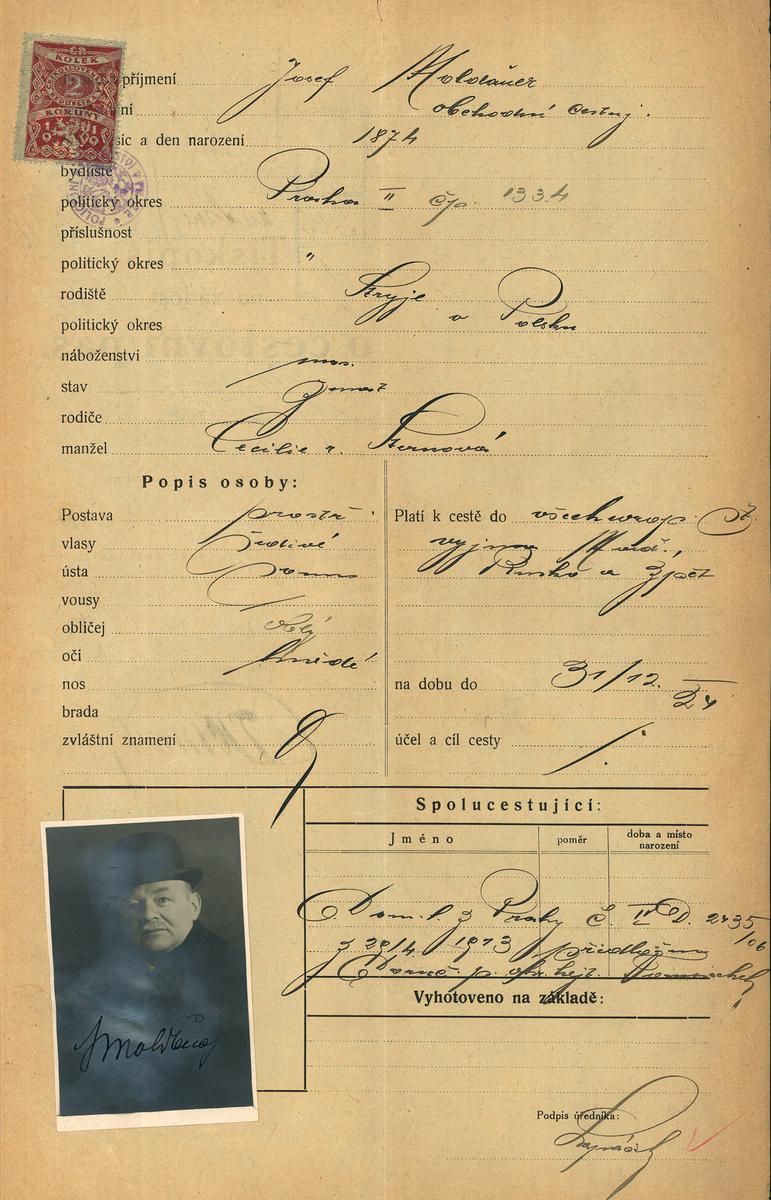 ČR
KOLEK
2
KORUNY
1919
příjmení Josef Moldauer
ní obchodní cestuj.
síc a den narození 1874
bydliště
politický okres Praha II čp. 1334
příslušnost
politický okres "
rodiště Stryje
politický okres v Polsku
náboženství mos.
stav ženat
rodiče
manžel Cecilie r. Sternová
Popis osoby:
Postava prostř.
vlasy šedivé
ústa
vousy
obličej
oči hnědé
nos
brada
zvláštní znamení
Platí k cestě do všech evrop. st.
vyjma Maď.,
Ruska a zpět
na dobu do 31/12. 24
účel a cíl cesty /.
Spolucestující:
Jméno poměr doba a místo
narození
Dom. l. z Prahy Č. II D. 2435/06
z 29/4 1913
Vyhotoveno na základě:
Podpis úředníka:
JMoldauer